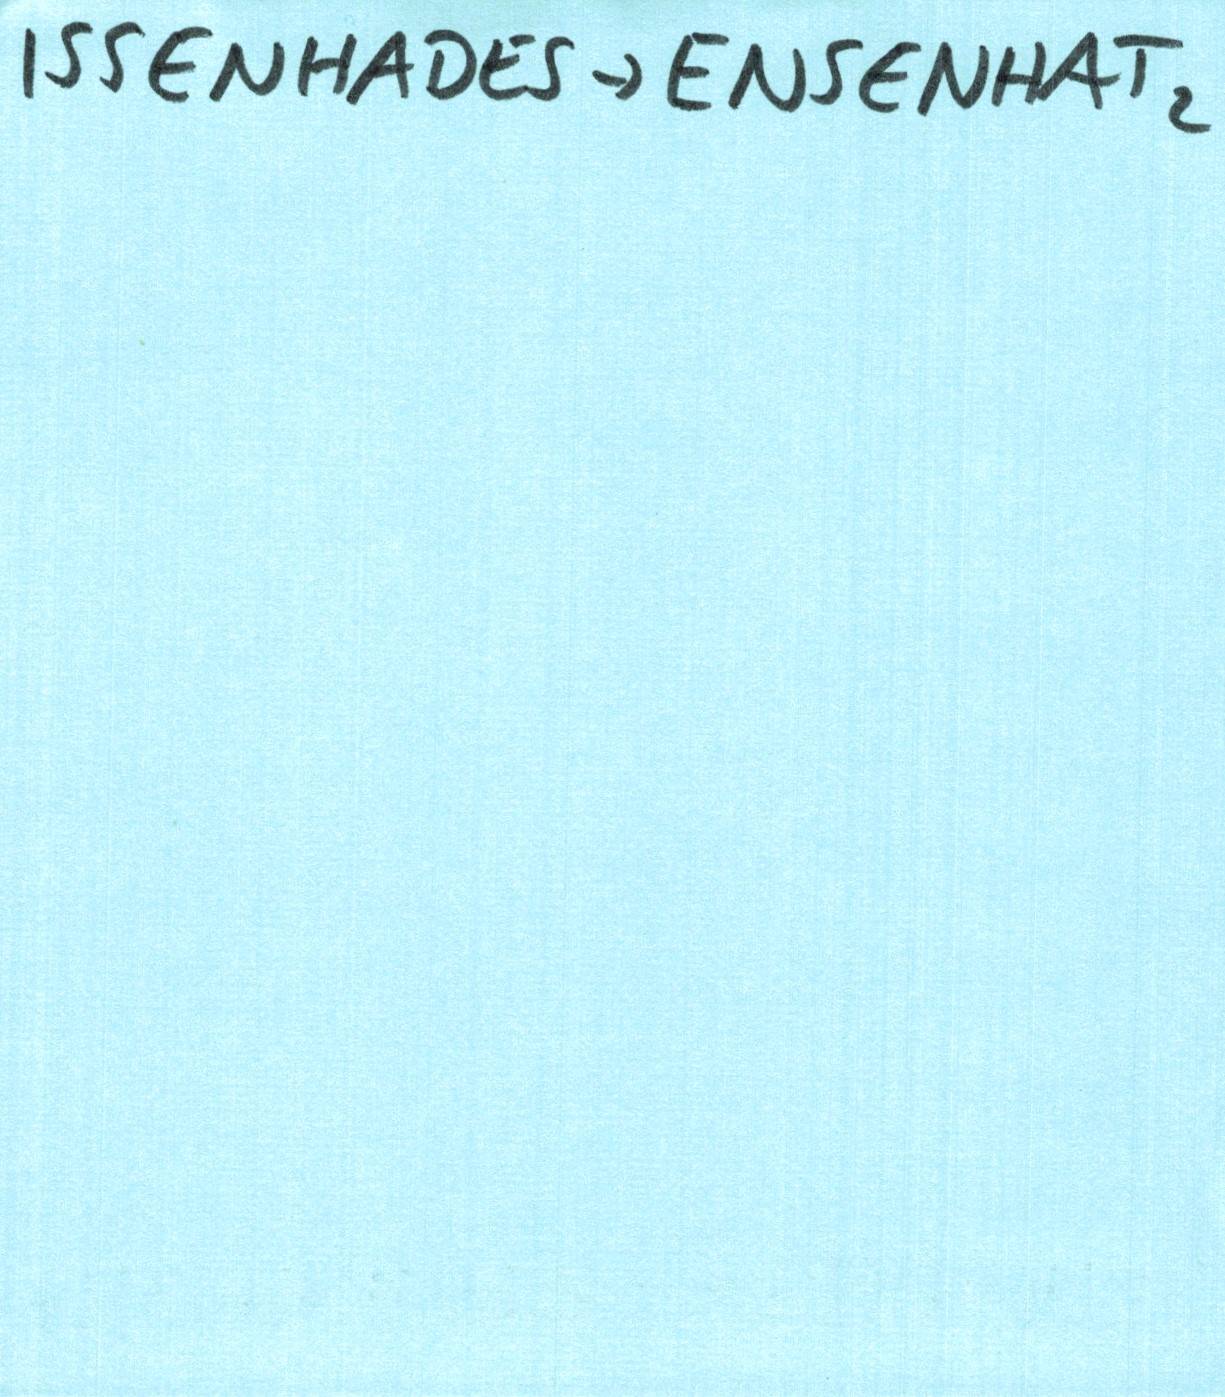 ISSENHADES → ENSENHAT₂